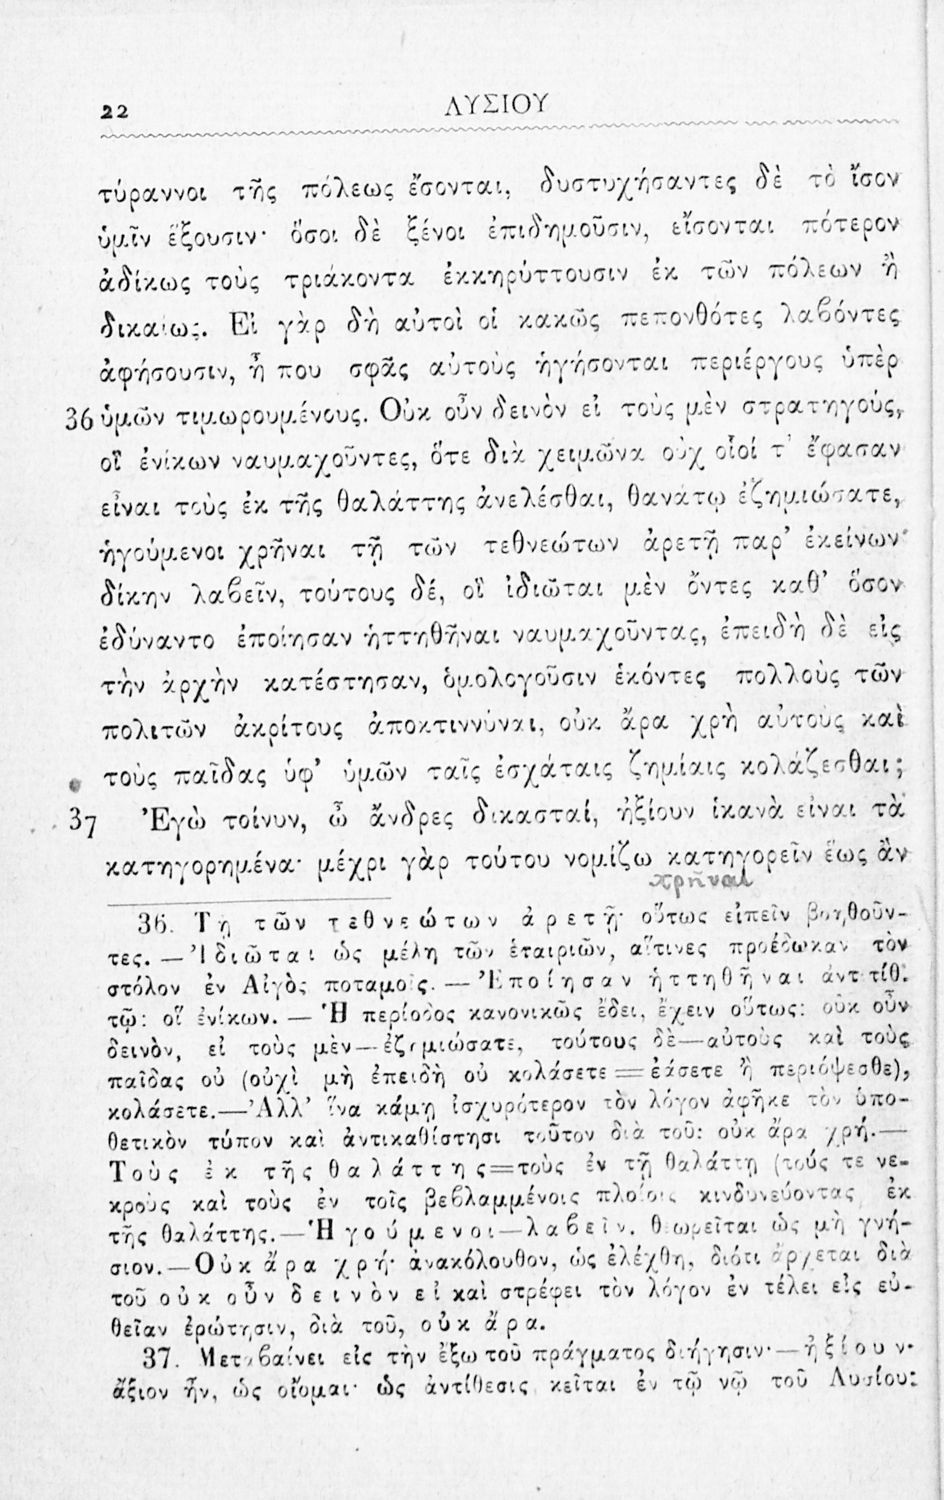 22 ΛΥΣΙΟΥ
τύραννοι τῆς πόλεως ἔσονται, δυστυχήσαντες δὲ τὸ ἴσον
ὑμῖν ἕξουσιν· ὅσοι δὲ ξένοι ἐπιδημοῦσιν, εἴσονται πότερον
ἀδίκως τοὺς τριάκοντα ἐκκηρύττουσιν ἐκ τῶν πόλεων ἢ
δικαίως. Εἰ γὰρ δὴ αὐτοὶ οἱ κακῶς πεπονθότες λαβόντες
ἀφήσουσιν, ἦ που σφᾶς αὐτοὺς ἡγήσονται περιέργους ὑπὲρ
36 ὑμῶν τιμωρουμένους. Οὐκ οὖν δεινὸν εἰ τοὺς μὲν στρατηγούς,
οἳ ἐνίκων ναυμαχοῦντες, ὅτε διὰ χειμῶνα οὐχ οἷοί τ' ἔφασαν
εἶναι τοὺς ἐκ τῆς θαλάττης ἀνελέσθαι, θανάτῳ ἐζημιώσατε,
ἡγούμενοι χρῆναι τῇ τῶν τεθνεώτων ἀρετῇ παρ' ἐκείνων
δίκην λαβεῖν, τούτους δέ, οἳ ἰδιῶται μὲν ὄντες καθ' ὅσον
ἐδύναντο ἐποίησαν ἡττηθῆναι ναυμαχοῦντας, ἐπειδὴ δὲ εἰς
τὴν ἀρχὴν κατέστησαν, ὁμολογοῦσιν ἑκόντες πολλοὺς τῶν
πολιτῶν ἀκρίτους ἀποκτιννύναι, οὐκ ἄρα χρὴ αὐτοὺς καὶ
τοὺς παῖδας ὑφ' ὑμῶν ταῖς ἐσχάταις ζημίαις κολάζεσθαι;
37 Ἐγὼ τοίνυν, ὦ ἄνδρες δικασταί, ἠξίουν ἱκανὰ εἶναι τὰ
κατηγορημένα· μέχρι γὰρ τούτου νομίζω κατηγορεῖν ἕως ἂν
χρῆναι
36. Τῇ τῶν τεθνεώτων ἀρετῇ· οὕτως εἰπεῖν βοηθοῦν-
τες. — Ἰδιῶται ὡς μέλη τῶν ἑταιριῶν, αἵτινες προέδωκαν τὸν
στόλον ἐν Αἰγὸς ποταμοῖς. — Ἐποίησαν ἡττηθῆναι ἀντιτίθ.
τῷ: οἳ ἐνίκων. — Ἡ περίοδος κανονικῶς ἔδει, ἔχειν οὕτως: οὐκ οὖν
δεινὸν, εἰ τοὺς μὲν — ἐζημιώσατε, τούτους δὲ — αὐτοὺς καὶ τοὺς
παῖδας οὐ (οὐχὶ μὴ ἐπειδὴ οὐ κολάσετε = ἐάσετε ἢ περιόψεσθε),
κολάσετε. — Ἀλλ' ἵνα κάμῃ ἰσχυρότερον τὸν λόγον ἀφῆκε τὸν ὑπο-
θετικὸν τύπον καὶ ἀντικαθίστησι τοῦτον διὰ τοῦ: οὐκ ἄρα χρή. —
Τοὺς ἐκ τῆς θαλάττης = τοὺς ἐν τῇ θαλάττῃ (τούς τε νε-
κροὺς καὶ τοὺς ἐν τοῖς βεβλαμμένοις πλοίοις κινδυνεύοντας ἐκ
τῆς θαλάττης. — Ἡγούμενοι — λαβεῖν. θεωρεῖται ὡς μὴ γνή-
σιον. — Οὐκ ἄρα χρή· ἀνακόλουθον, ὡς ἐλέχθη, διότι ἄρχεται διὰ
τοῦ οὐκ οὖν δεινὸν εἰ καὶ στρέφει τὸν λόγον ἐν τέλει εἰς εὐ-
θεῖαν ἐρώτησιν, διὰ τοῦ, οὐκ ἄρα.
37. Μεταβαίνει εἰς τὴν ἔξω τοῦ πράγματος διήγησιν· — ἠξίουν·
ἄξιον ἦν, ὡς οἴομαι· ὡς ἀντίθεσις κεῖται ἐν τῷ νῷ τοῦ Λυσίου: